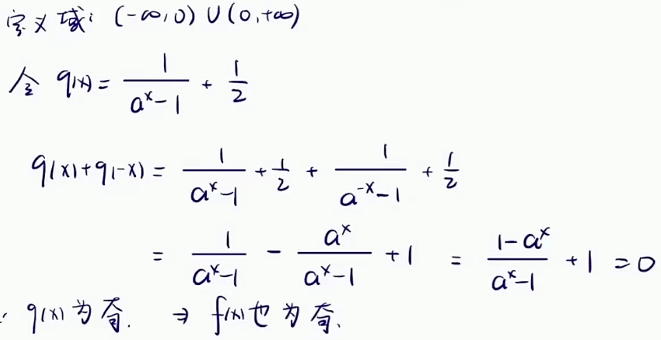 定义域: (-∞,0)∪(0,+∞)
令 g(x) = \frac{1}{a^x-1} + \frac{1}{2}
g(x)+g(-x) = \frac{1}{a^x-1} + \frac{1}{2} + \frac{1}{a^{-x}-1} + \frac{1}{2}
= \frac{1}{a^x-1} - \frac{a^x}{a^x-1} + 1 = \frac{1-a^x}{a^x-1} + 1 = 0
g(x)为奇. ⇒ f(x)也为奇.